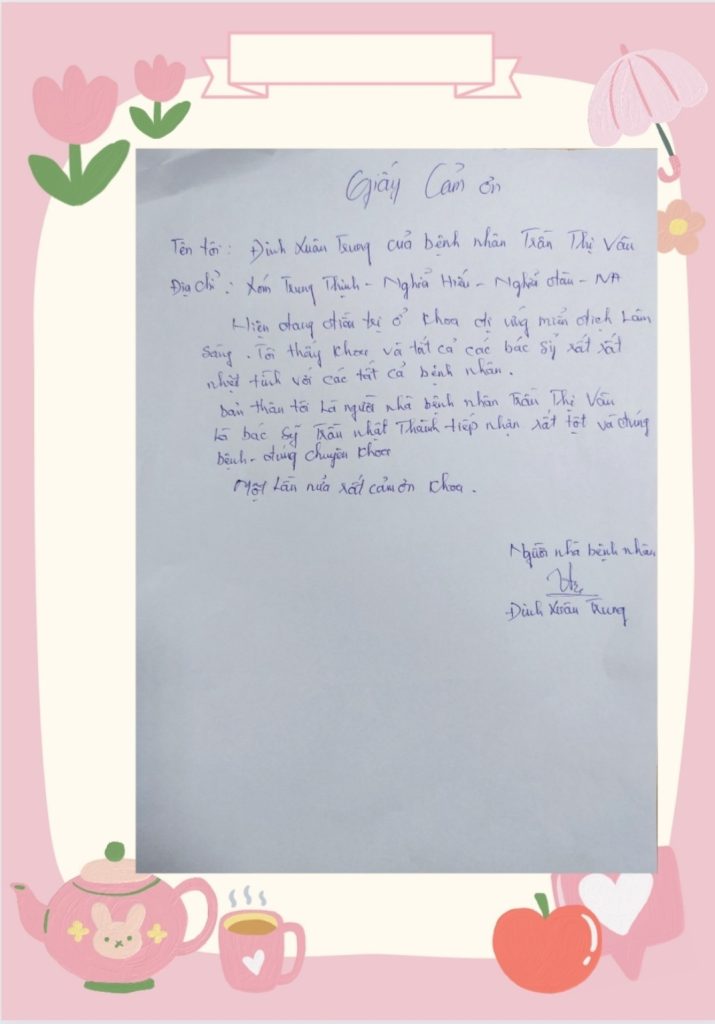 Giấy Cảm ơn
Tên tôi: Đinh Xuân Trung của bệnh nhân Trần Thị Vân
Địa chỉ: Xóm Trung Thịnh - Nghĩa Hiếu - Nghĩa Đàn - NA
Hiện đang điều trị ở khoa dị ứng miễn dịch Lâm
Sàng. Tôi thấy khoa và tất cả các bác sỹ rất rất
nhiệt tình với các tất cả bệnh nhân.
bản thân tôi Là người nhà bệnh nhân Trần Thị Vân
Là bác sỹ Trần nhật Thành tiếp nhận rất tột và đúng
bệnh - đúng chuyên khoa
Một Lần nửa rất cảm ơn khoa.
Người nhà bệnh nhân
Đinh Xuân Trung